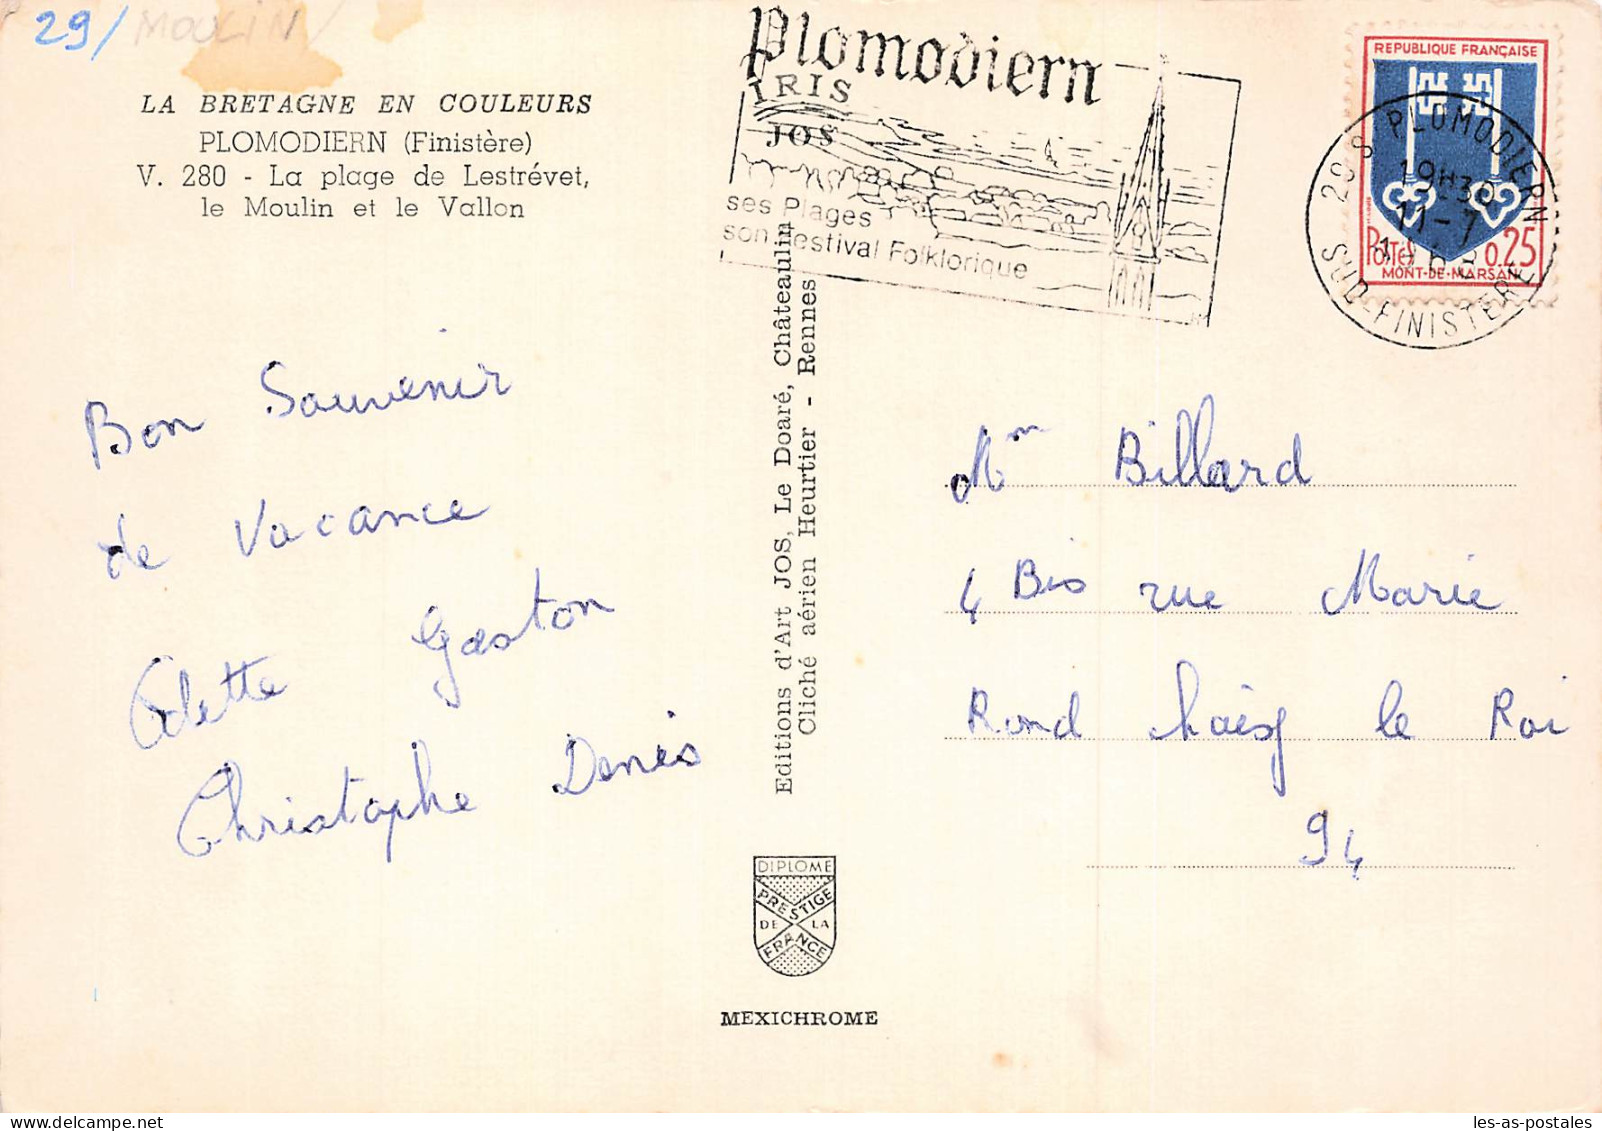 29/ MOULIN/
LA BRETAGNE EN COULEURS
PLOMODIERN (Finistère)
V. 280 - La plage de Lestrévet,
le Moulin et le Vallon
Plomodiern
IRIS
JOS
ses Plages
son Festival Folklorique
REPUBLIQUE FRANÇAISE
POSTES 0,25
MONT-DE-MARSAN
PLOMODIERN
19H30
11-7
SUD-FINISTERE
Bon Souvenir
de Vacance
Odette Gaston
Christophe Denis
Editions d'Art JOS, Le Doaré, Châteaulin
Cliché aérien Heurtier - Rennes
Mm Billard
4 Bis rue Marie
Rond Choisy le Roi
94
DIPLOME
PRESTIGE
DE LA
FRANCE
MEXICHROME
les-as-postales